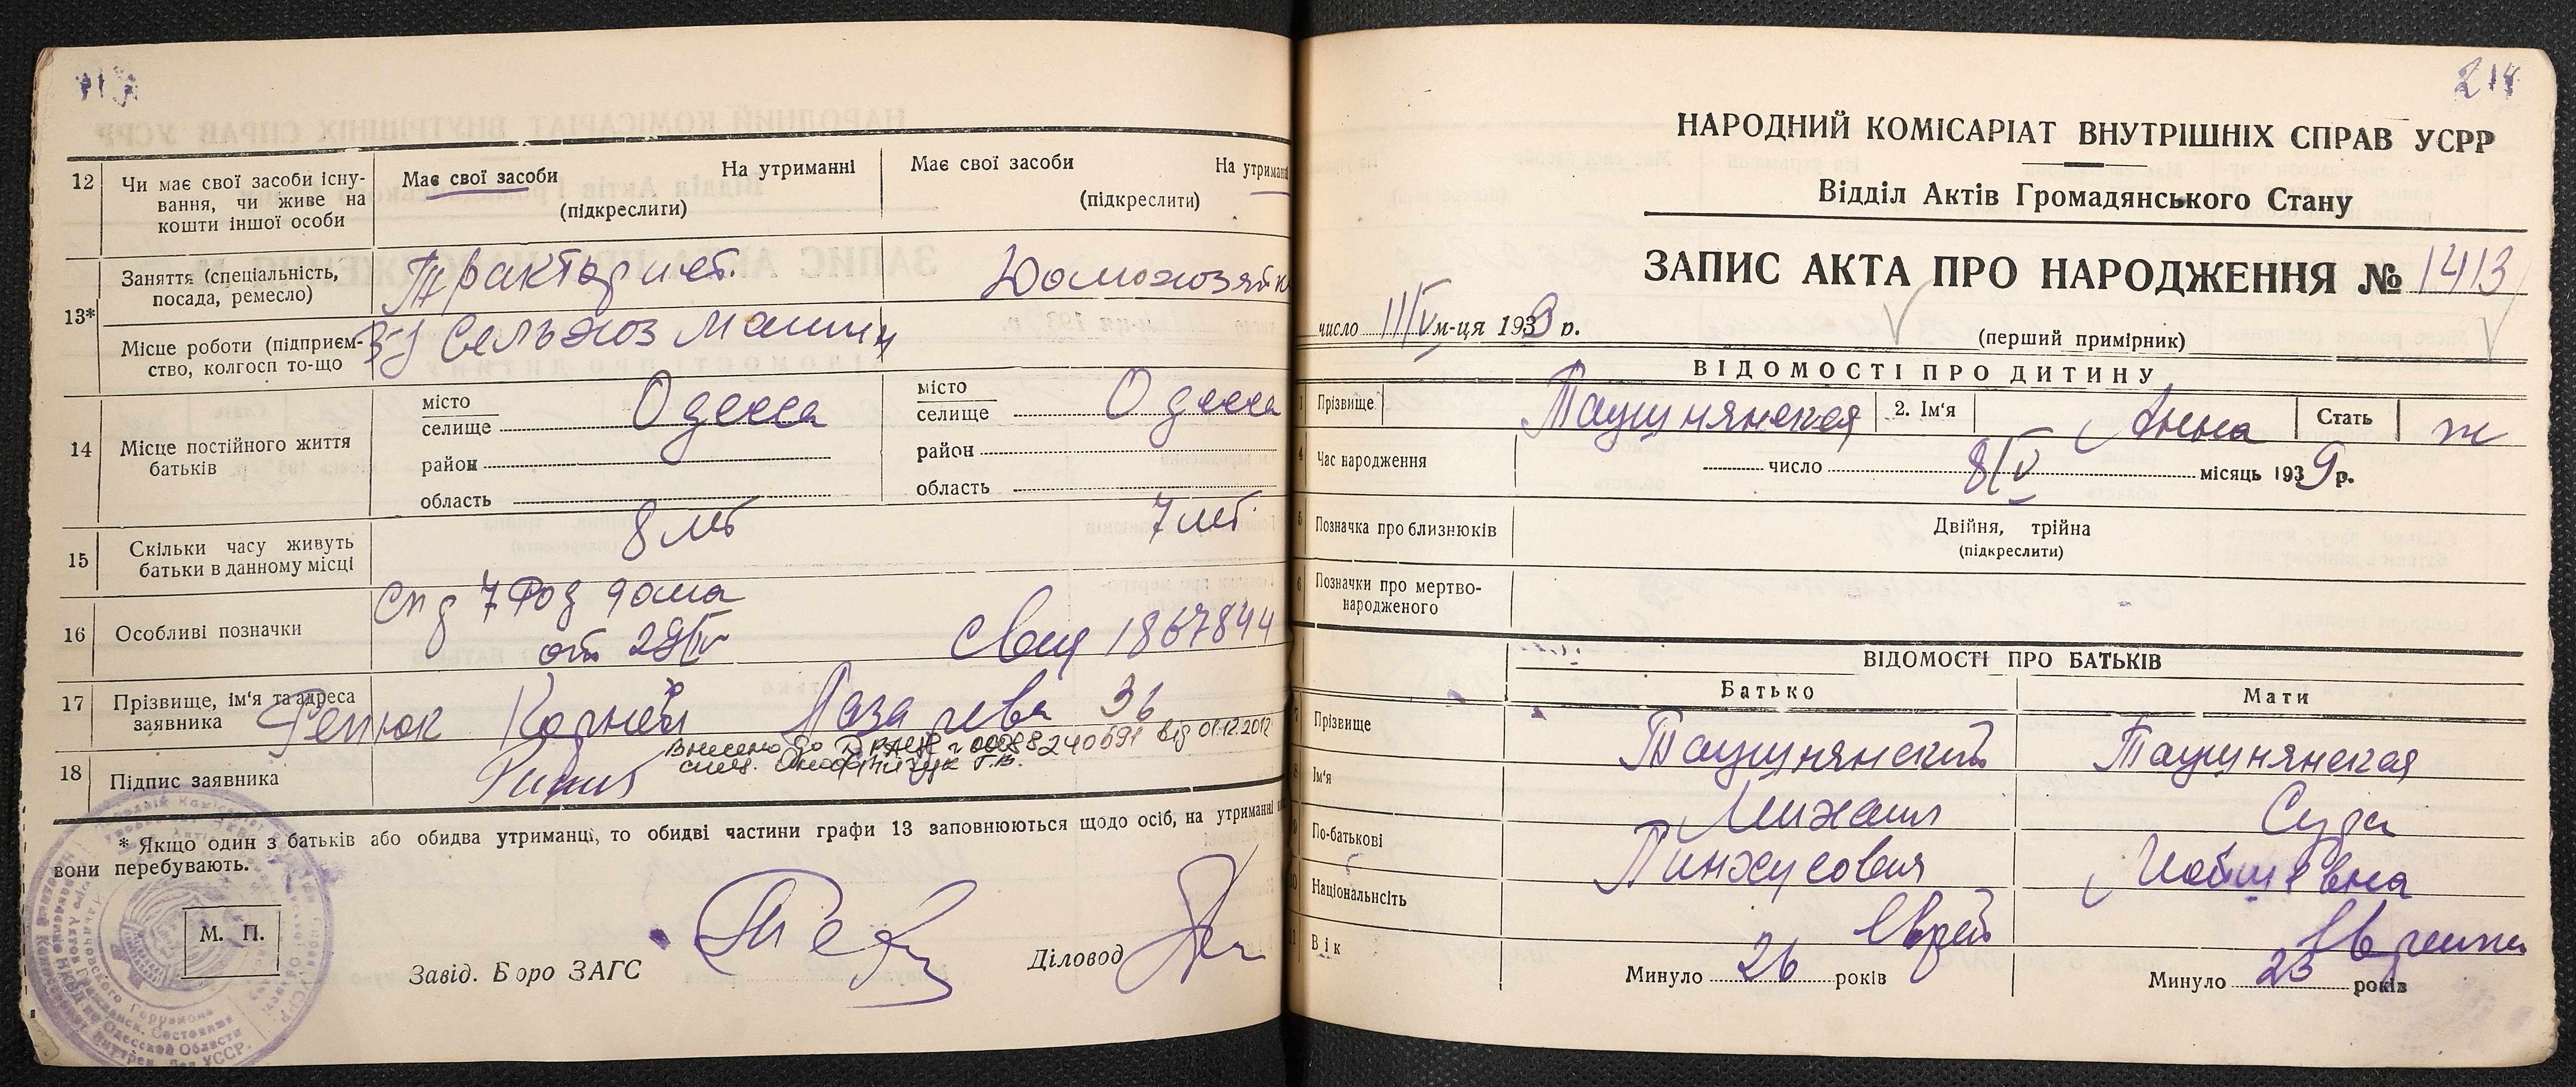 12 Чи має свої засоби існу-
вання, чи живе на
кошти іншої особи
Має свої засоби На утриманні
(підкреслити)
Має свої засоби На утриманні
(підкреслити)
13* Заняття (спеціальність,
посада, ремесло)
Тракторист. Домохозяйк
Місце роботи (підприєм-
ство, колгосп то-що
Сельхоз Машин
14 Місце постійного життя
батьків
місто
селище Одесса
район
область
місто
селище Одесса
район
область
15 Скільки часу живуть
батьки в данному місці
8 лет 7 лет.
16 Особливі позначки
7 Род дома
от 29/IV Свид 1867844
17 Прізвище, ім'я та адреса
заявника
Репюк Корней Лазарева 36
Внесено до ДРАЦС 240591 від 01.12.2012
18 Підпис заявника
* Якщо один з батьків або обидва утриманці, то обидві частини графи 13 заповнюються щодо осіб, на утриманні
вони перебувають.
М. П.
Завід. Бюро ЗАГС
Діловод
214
НАРОДНИЙ КОМІСАРІАТ ВНУТРІШНІХ СПРАВ УСРР
Відділ Актів Громадянського Стану
ЗАПИС АКТА ПРО НАРОДЖЕННЯ № 1413
число 11/V м-ця 1939 р.
(перший примірник)
ВІДОМОСТІ ПРО ДИТИНУ
1 Прізвище Таущнянская 2. Ім'я Анна Стать ж
4 Час народження число 8/V місяць 1939 р.
5 Позначка про близнюків
Двійня, трійна
(підкреслити)
6 Позначки про мертво-
народженого
ВІДОМОСТІ ПРО БАТЬКІВ
Батько Мати
7 Прізвище Таущнянский Таущнянская
8 Ім'я Михаил Сура
9 По-батькові Пинхусович Мойшевна
10 Національнсіть Еврей Еврейка
11 Вік Минуло 26 років Минуло 23 років